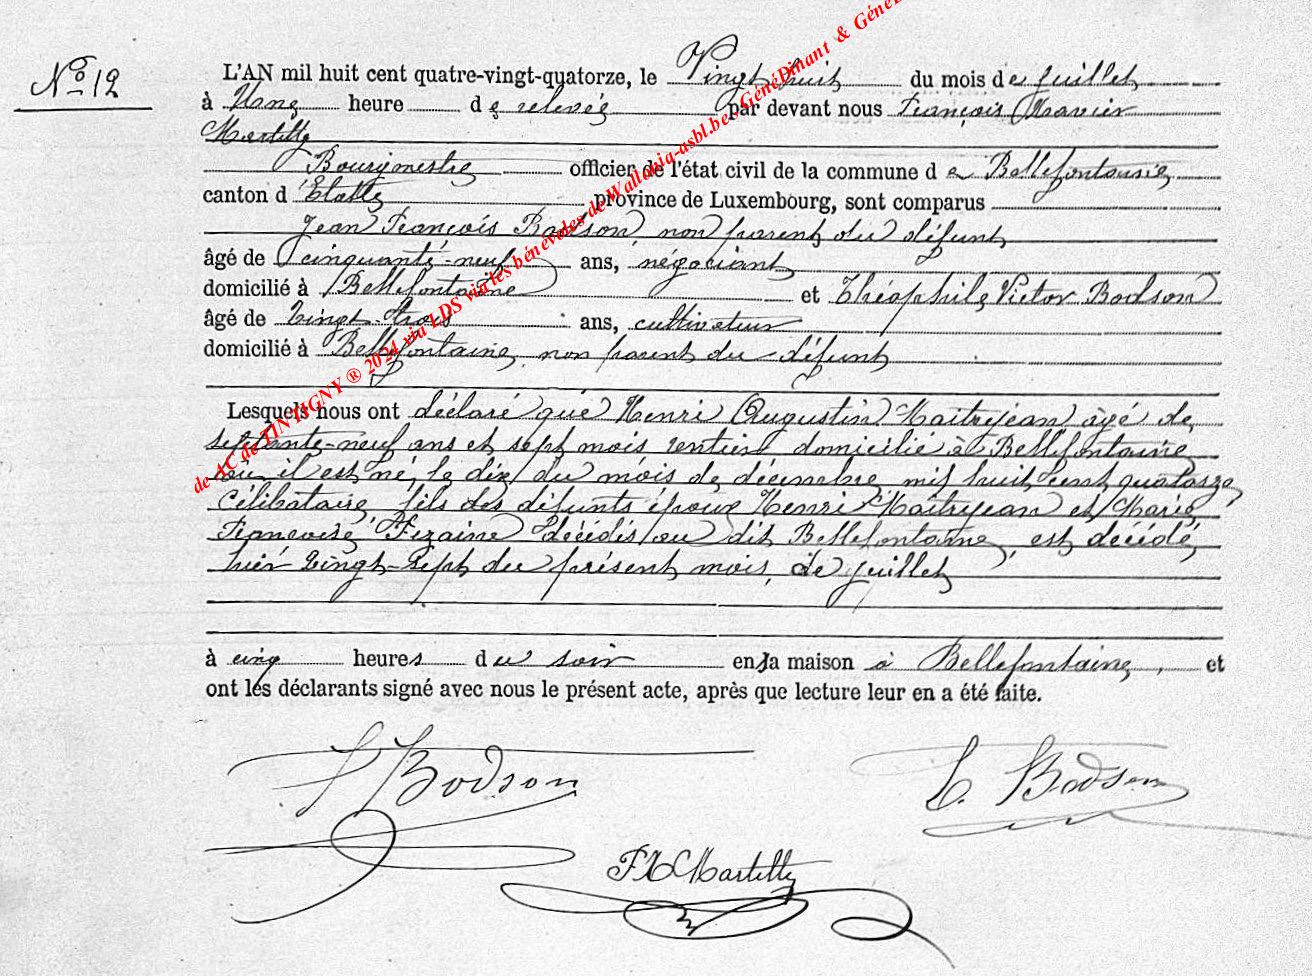 No 12
L'AN mil huit cent quatre-vingt-quatorze, le Vingt huit du mois de juillet
à Une heure de relevée par devant nous François Xavier
Martilly
Bourgmestre officier de l'état civil de la commune de Bellefontaine
canton d'Etalle province de Luxembourg, sont comparus
Jean François Bodson, non parent du défunt
âgé de cinquante-neuf ans, négociant
domicilié à Bellefontaine et Théophile Victor Bodson
âgé de Vingt-trois ans, cultivateur
domicilié à Bellefontaine, non parent du défunt
Lesquels nous ont déclaré que Henri Augustin Maitrejean âgé de
septante-neuf ans et sept mois rentier domicilié à Bellefontaine
où il est né, le dix du mois de décembre mil huit cent quatorze,
célibataire, fils des défunts époux Henri Maitrejean et Marie
Françoise décédés au dit Bellefontaine, est décédé
hier vingt-sept du présent mois, de juillet
à cinq heures du soir en la maison à Bellefontaine, et
ont les déclarants signé avec nous le présent acte, après que lecture leur en a été faite.
Bodson
T. Bodson
FX Martilly
de AC de TINTIGNY ® 2024 via LDS via les bénévoles de Wallonia-asbl.be - GénéDinant & Géné